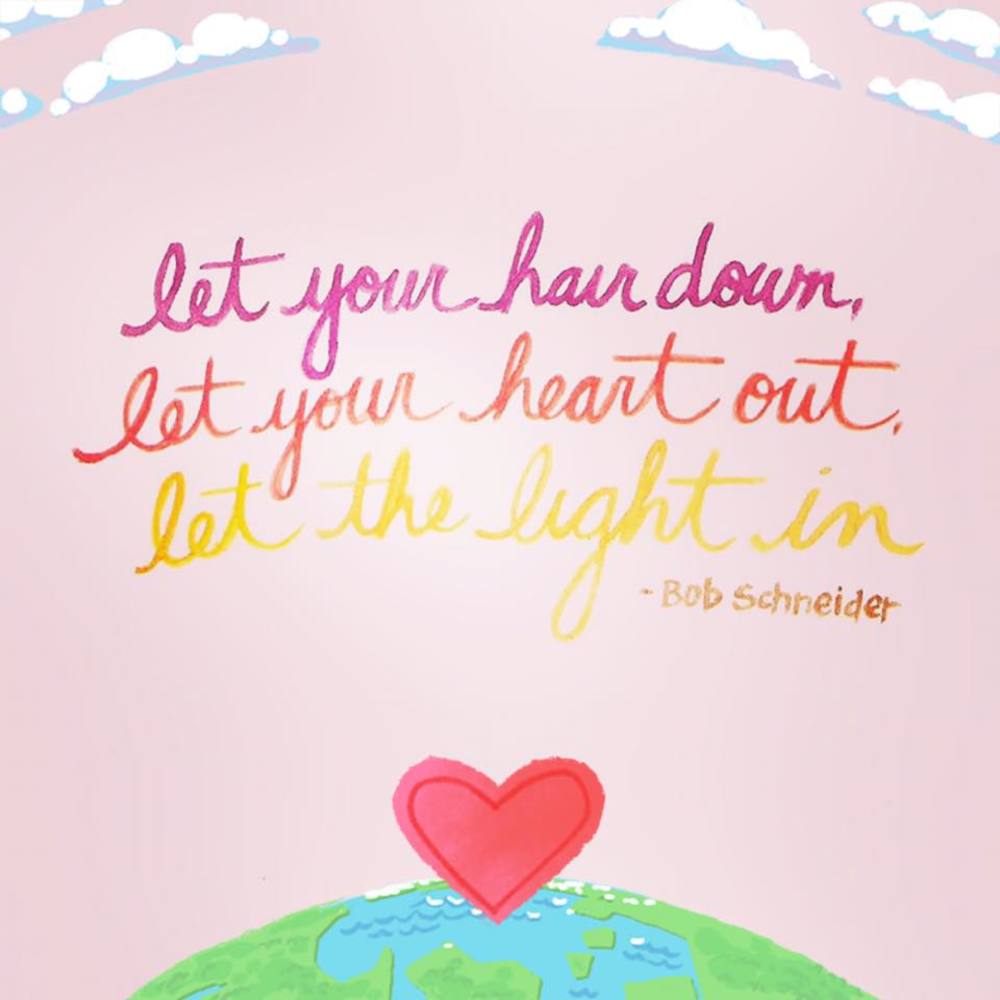 let your hair down,
let your heart out,
let the light in
- Bob Schneider